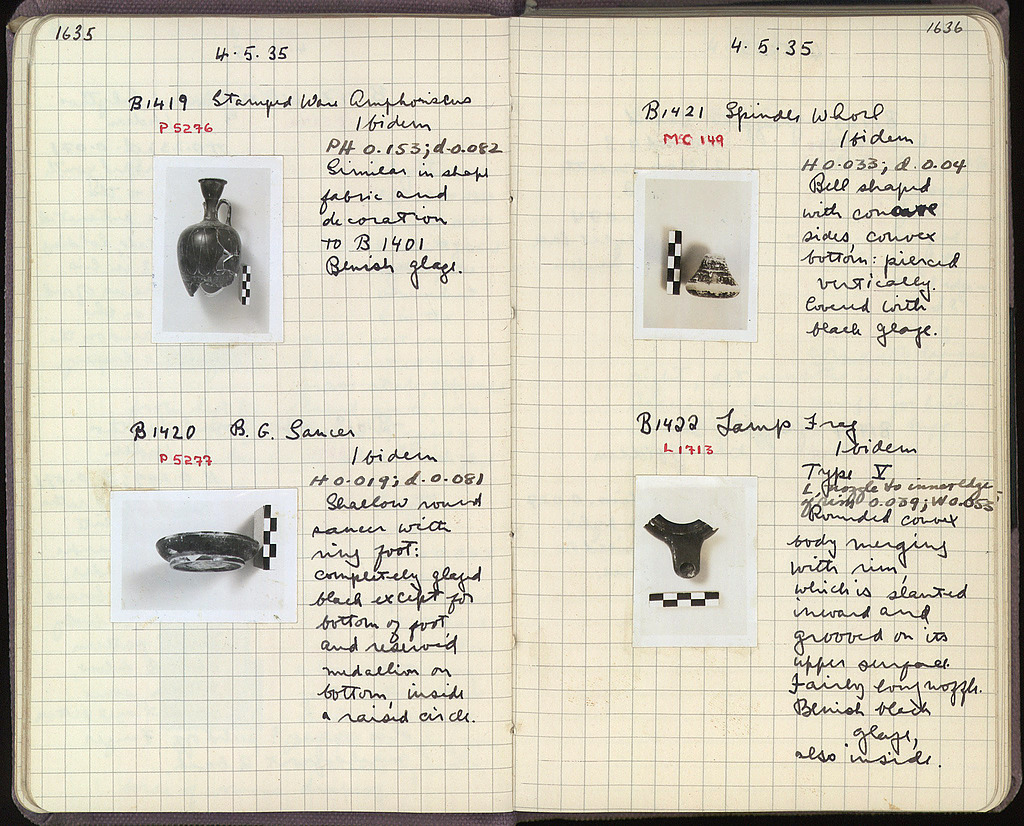 1635
4.5.35
B1419 Stamped Ware Amphoriscus
P 5276
Ibidem
PH 0.153; d-0.082
Similar in shape
fabric and
decoration
to B 1401
Blmish glaze.
B1420 B.G. Saucer
P 5277
Ibidem
H 0.019; d-0.081
Shallow round
saucer with
ring foot:
completely glazed
black except for
bottom of foot
and reserved
medallion on
bottom, inside
a raised circle.
1636
4.5.35
B1421 Spindle Whorl
MC 149
Ibidem
H 0.033; d.0.04
Bell shaped
with concave
sides, convex
bottom: pierced
vertically.
Covered with
black glaze.
B1422 Lamp Frag
L 1713
Ibidem
Type V
L, nozzle to inner edge
of rim 0.039; W 0.055
Rounded convex
body merging
with rim,
which is slanted
inward and
grooved on its
upper surface.
Fairly long nozzle.
Blmish black
glaze,
also inside.